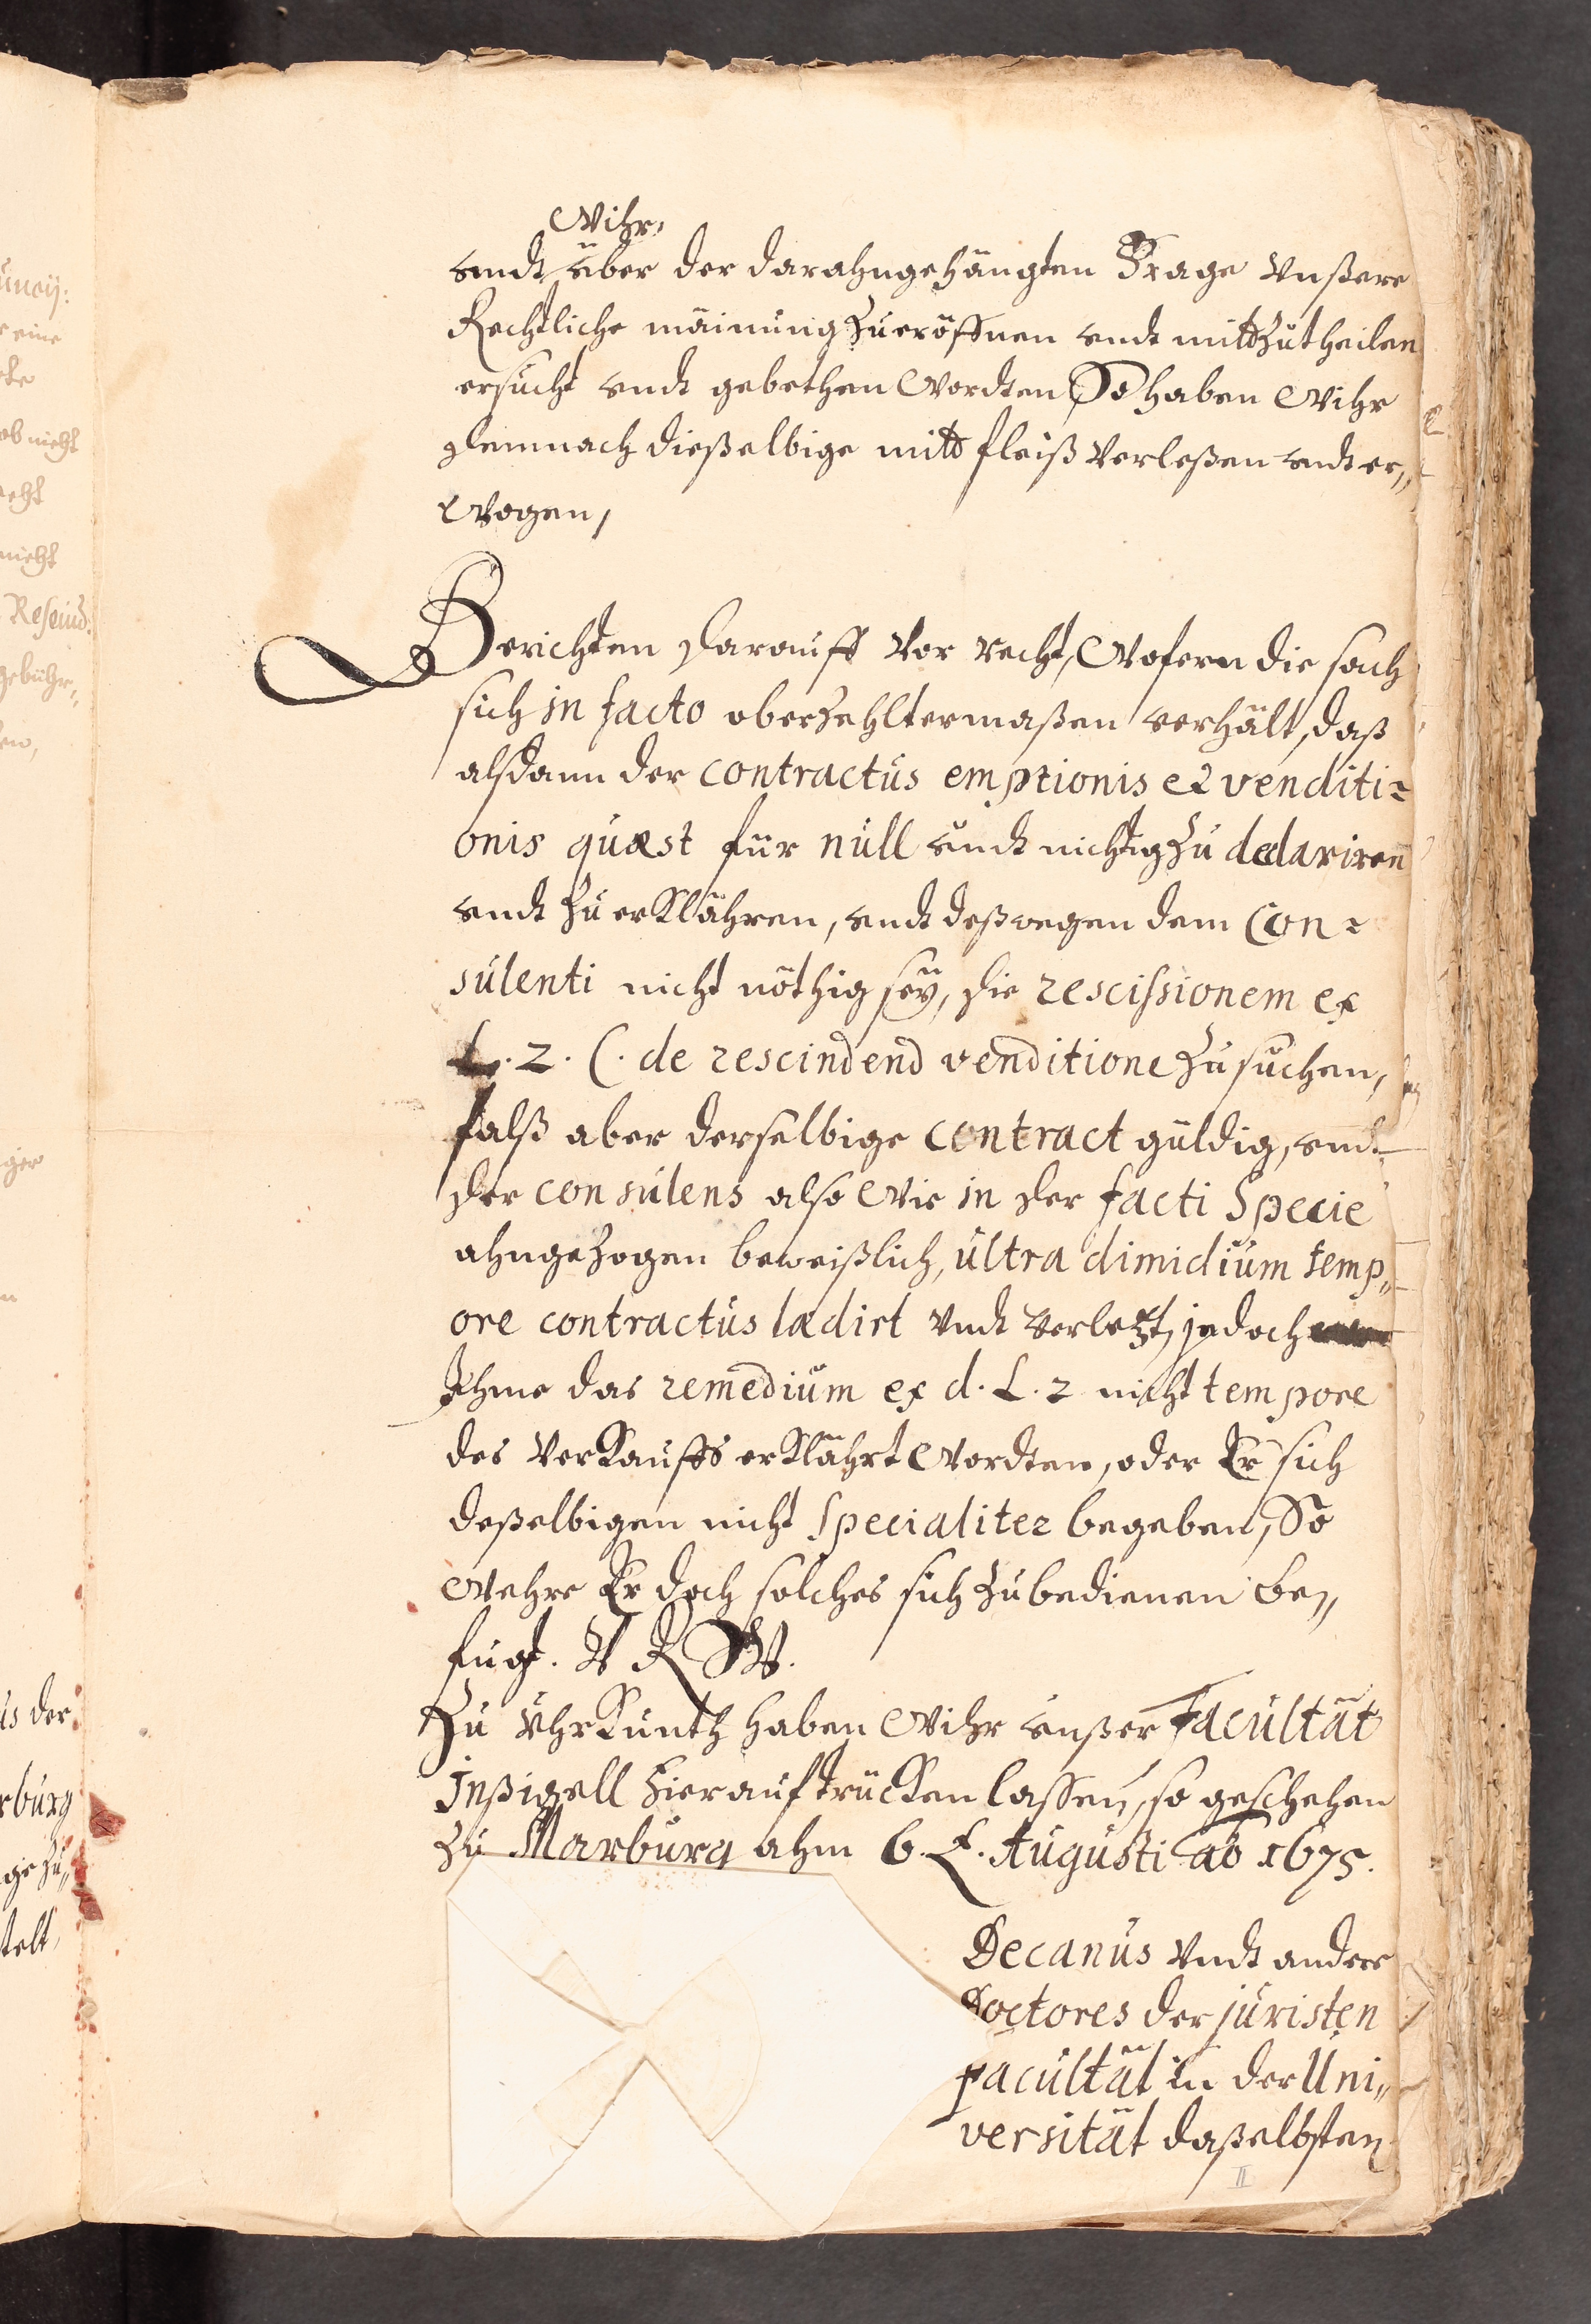 Wihr,
undt über der darahngehängten Frage Unßere
Rechtliche mäinung Zueröffnen undt mittZutheilen
ersucht undt gebethen Wordten, So haben Wihr
demnach dießelbige mitt fleiß Verleßen undt er„
Wogen,
Berichten darauff Vor recht, Wofern die sach
sich in facto oberzehltermaßen verhält, daß
alsdann der contractus emptionis et venditi=
onis quæst für null undt nichtig Zu declariren
undt Zu erklähren, undt deßwegen dem Con=
sulenti nicht nöthig seÿ, die rescissionem ex
L. 2. C. de rescindend venditione Zu suchen,
falß aber derselbige contract güldig, undt
der consulens also Wie in der facti Specie
ahngezogen beweißlich, ultra dimidium temp„
ore contractus lædirt Undt Verletzt, jedoch
Ihme das remedium ex d. L. 2 nicht tempore
des Verkauffs erklährt Wordten, oder Er sich
deßelbigen nicht Specialiter begeben, So
Wehre Er doch solches sich Zubedienen be„
fugt. V R W.
Zu Uhrkuntz haben Wihr unßer Facultät
Inßigell hierauftrücken lassen, so geschehen
Zu Marburg ahm 6. t. Augusti ao 1675.
Decanus Undt andere
Doctores der juristen
facultät in der Uni„
versität daßelbsten
II
üneÿ:
eine
ob nicht
nicht
Rescind.
gebühr„
en,
us der
rburg
ge zu„
telt,